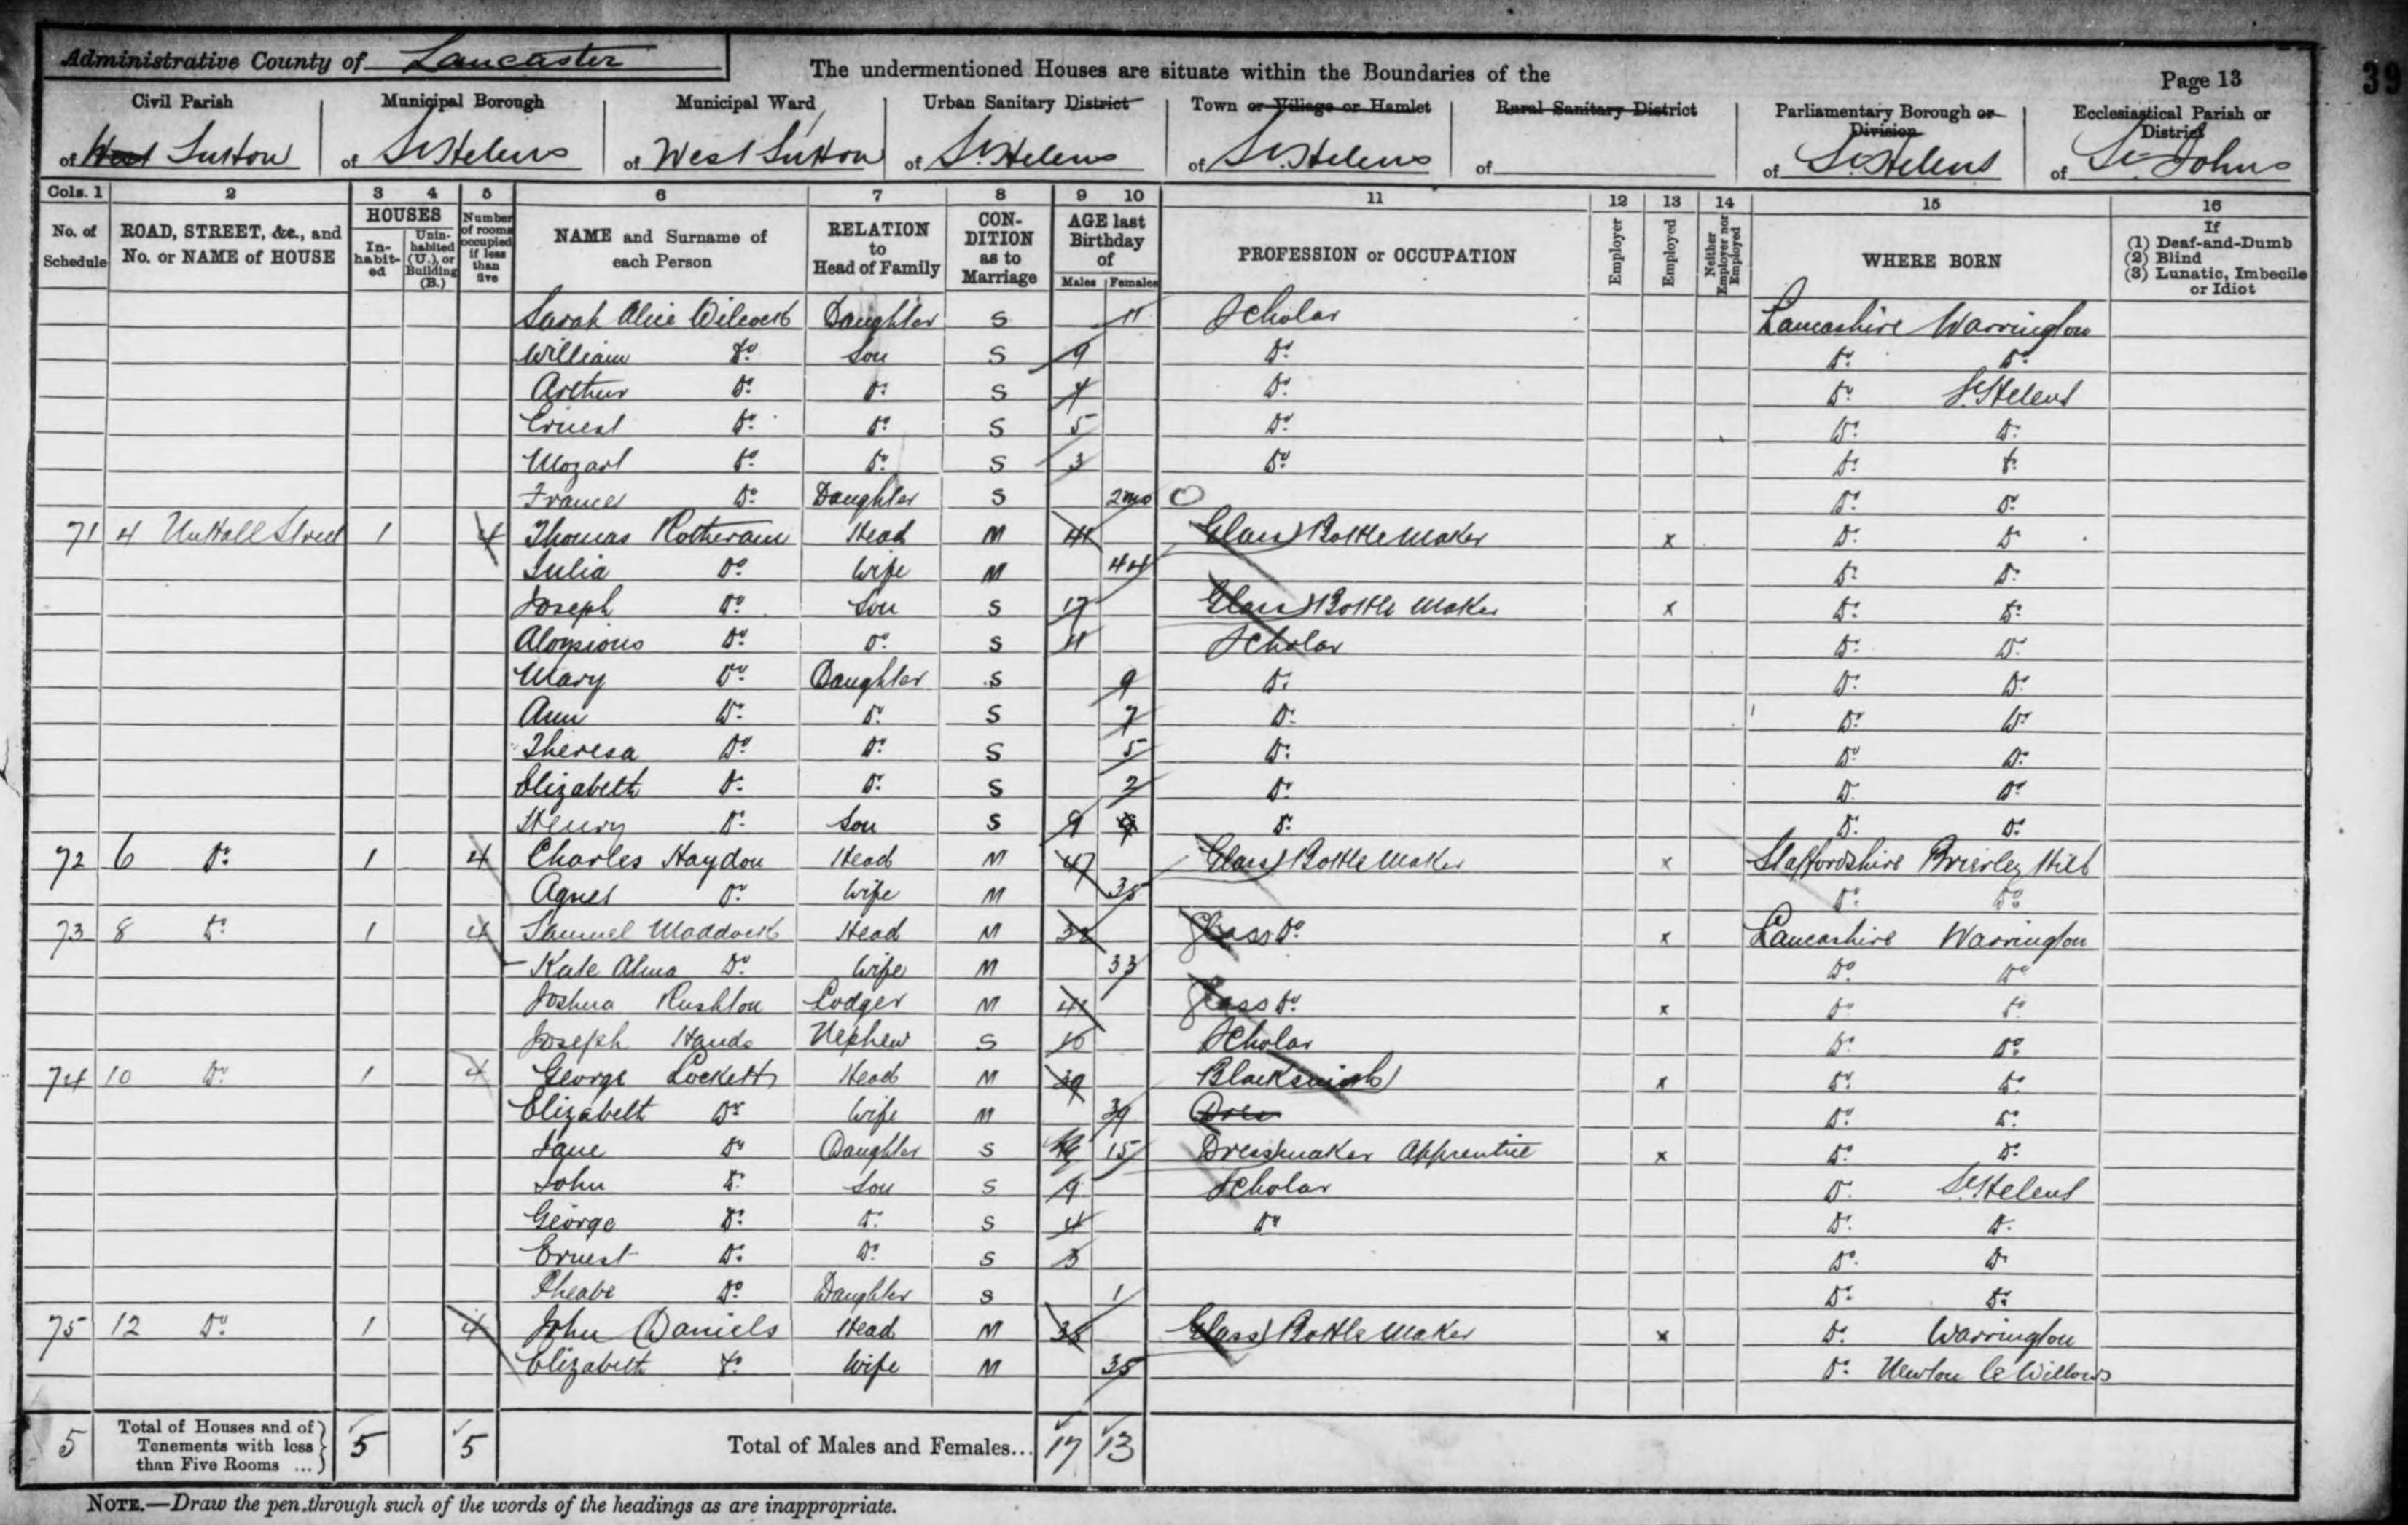 Administrative County of Lancaster
The undermentioned Houses are situate within the Boundaries of the
Page 13
39
Civil Parish Municipal Borough Municipal Ward Urban Sanitary District Town or Village or Hamlet Rural Sanitary District Parliamentary Borough or Division Ecclesiastical Parish or District
of West Sutton of St Helens of West Sutton of St. Helens of St. Helens of of St. Helens of St. Johns
Cols. 1 2 3 4 5 6 7 8 9 10 11 12 13 14 15 16
No. of Schedule ROAD, STREET, &c., and No. or NAME of HOUSE HOUSES In-habit-ed Unin-habited (U.), or Building (B.) Number of rooms occupied if less than five NAME and Surname of each Person RELATION to Head of Family CON-DITION as to Marriage AGE last Birthday of Males Females PROFESSION or OCCUPATION Employer Employed Neither Employer nor Employed WHERE BORN If (1) Deaf-and-Dumb (2) Blind (3) Lunatic, Imbecile or Idiot
Sarah Alice Wilcock Daughter S 11 Scholar Lancashire Warrington
William Do Son S 9 Do Do Do
Arthur Do Do S Do Do St Helens
Ernest Do Do S 5 Do Do Do
Mozart Do Do S 3 Do Do Do
Frances Do Daughter S 2mo Do Do
71 4 Street 1 4 Thomas Rotheram Head M 41 Glass Bottle Maker x Do Do
Julia Do Wife M 44 Do Do
Joseph Do Son S 17 Glass Bottle Maker x Do Do
Aloysious Do Do S 11 Scholar Do Do
Mary Do Daughter S 9 Do Do Do
Ann Do Do S 7 Do Do Do
Theresa Do Do S 5 Do Do Do
Elizabeth Do Do S Do Do Do
Henry Do Son S 9 Do Do Do
72 6 Do 1 4 Charles Haydon Head M 47 Glass Bottle Maker x Staffordshire Brierley Hill
Agnes Do Wife M Do Do
73 8 Do 1 4 Samuel Maddock Head M Glass Do x Lancashire Warrington
Kate Alma Do Wife M 33 Do Do
Joshua Rushton Lodger M 41 Glass Do x Do Do
Joseph Hands Nephew S 10 Scholar Do Do
74 10 Do 1 4 George Lockett Head M 39 Blacksmith x Do Do
Elizabeth Do Wife M 39 Dres Do Do
Jane Do Daughter S 15 Dressmaker Apprentice x Do Do
John Do Son S 9 Scholar Do St Helens
George Do Do S 4 Do Do Do
Ernest Do Do S 3 Do Do
Pheabe Do Daughter S 1 Do Do
75 12 Do 1 4 John Daniels Head M 38 Glass Bottle Maker x Do Warrington
Elizabeth Do Wife M 35 Do Newton le Willows
5 Total of Houses and of Tenements with less than Five Rooms ... 5 5 Total of Males and Females... 17 13
NOTE.—Draw the pen through such of the words of the headings as are inappropriate.